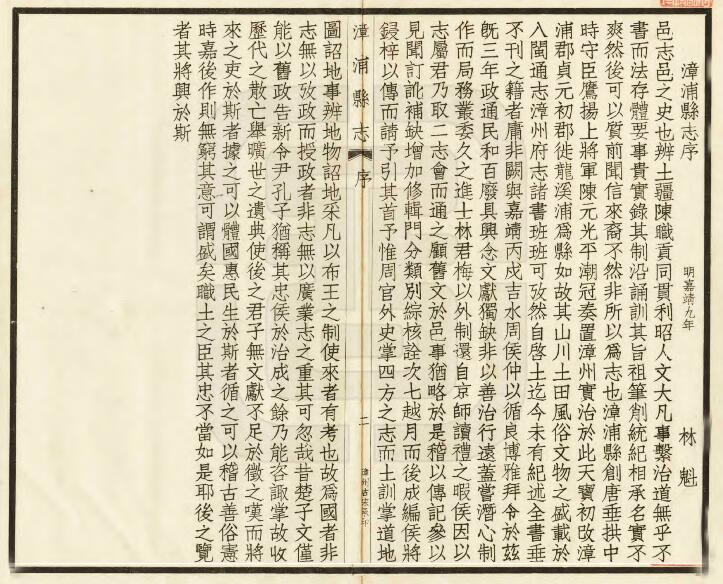 漳浦縣志序
明嘉靖九年 林魁
邑志邑之史也辨土疆陳職貢同貫利昭人文大凡事繫治道無乎不
書而法存體要事貴實錄其制沿誦訓其旨祖筆削統紀相承名實不
爽然後可以質前聞信來裔不然非所以爲志也漳浦縣創唐垂拱中
時守臣鷹揚上將軍陳元光平潮寇奏置漳州實治於此天寶初改漳
浦郡貞元初郡徙龍溪浦爲縣如故其山川土田風俗文物之盛載於
入閩通志漳州府志諸書班班可攷然自啓土迄今未有紀述全書垂
不刋之籍者庸非闕與嘉靖丙戌吉水周侯仲以循良博雅拜令於茲
旣三年政通民和百廢具興念文獻獨缺非以善治行遠蓋嘗潛心制
作而局務叢委久之進士林君梅以外制還自京師讀禮之暇侯因以
志屬君乃取二志會而通之顧舊文於邑事猶略於是稽以傳記參以
見聞訂訛補缺增加修輯門分類別綜核詮次七越月而後成編侯將
鋟梓以傳而請予引其首予惟周官外史掌四方之志而土訓掌道地
漳浦縣志 序 二
圖詔地事辨地物詔地采凡以布王之制使來者有考也故爲國者非
志無以攷政而授政者非志無以廣業志之重其可忽哉昔楚子文僅
能以舊政告新令尹孔子猶稱其忠侯於治成之餘乃能咨諏掌故收
歷代之散亡舉曠世之遺典使後之君子無文獻不足於徵之嘆而將
來之吏於斯者據之可以體國惠民生於斯者循之可以稽古善俗憲
時嘉後作則無窮其意可謂盛矣職土之臣其忠不當如是耶後之覽
者其將興於斯